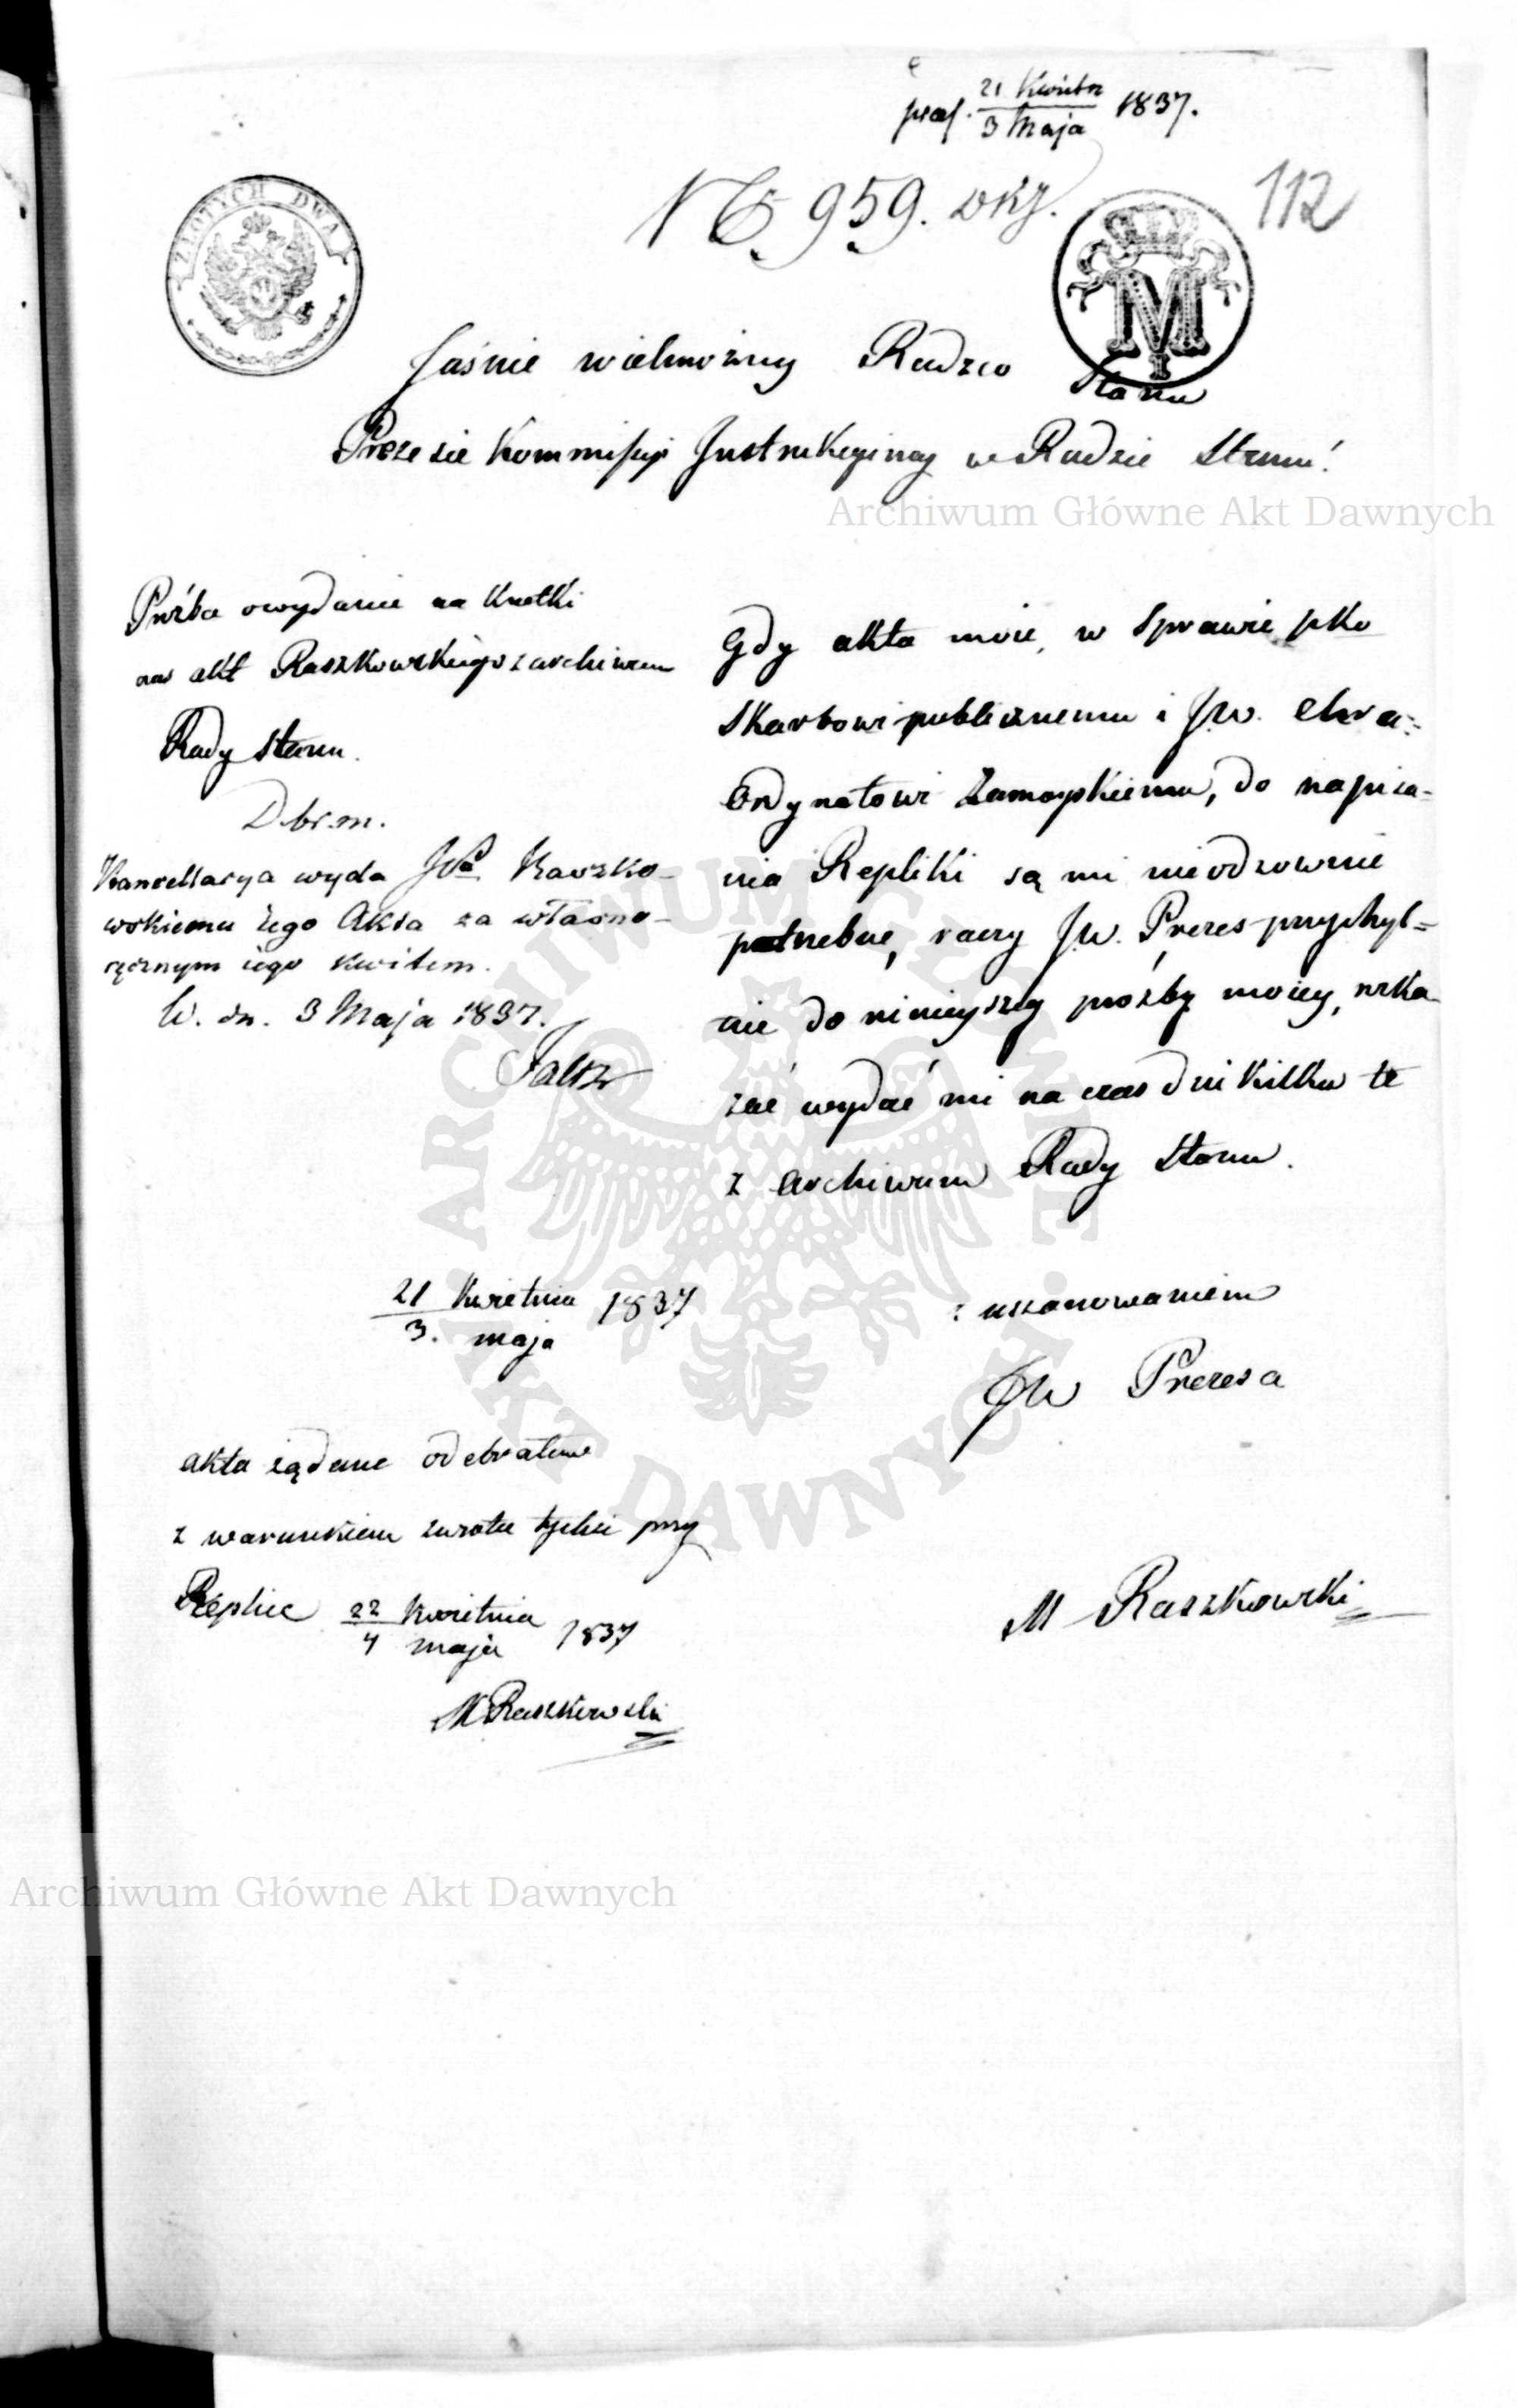 praes. 21 Kwietn / 3 Maja 1837.
No 959.
112
ZŁOTYCH DWA
M
I
Jaśnie wielmożny Radzco Stanu
Prezesie Kommissyi Instrukcyiney w Radzie Stanu!
Archiwum Główne Akt Dawnych
Proźba o wydanie na
akt Raszkowskiego z archiwum
Rady Stanu.
D. br. m.
Kancellarya wyda JP Raszko-
wskiemu iego Akta za własno-
ręcznym iego kwitem.
W. dn. 3 Maja 1837.
Gdy akta moie, w Sprawie pko
Skarbowi publicznemu i JW. Hra:
Ordynatowi Zamoyskiemu, do napisa-
nia Repliki są mi nieodzownie
potrzebne, raczy JW. Prezes przychyl=
nie do ninieyszey proźby moiey, nka-
zać wydać mi na czas dni kilku te
z archiwum Rady Stanu.
21 Kwietnia / 3. maja 1837
z uszanowaniem
JW Prezesa
M Raszkowski
akta żądane odebrałem
z warunkiem zwrotu tychże przy
Replice 22 Kwietnia / 4 maja 1837
M Raszkowski
ARCHIWUM GŁÓWNE AKT DAWNYCH
Archiwum Główne Akt Dawnych